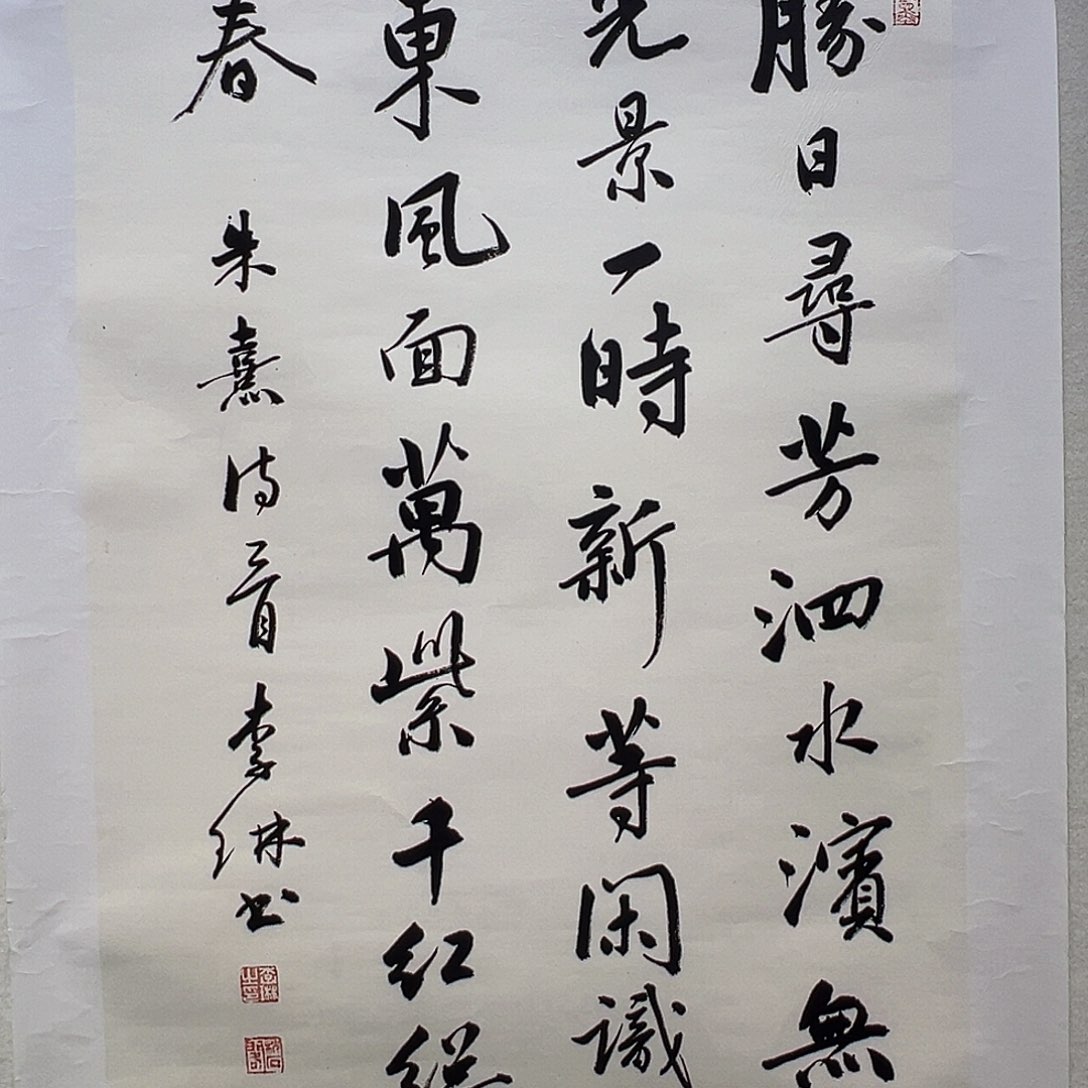 勝日尋芳泗水濱無
光景一時新等閑識
東風面萬紫千紅總
春
朱熹詩一首李琳書
李琳之印